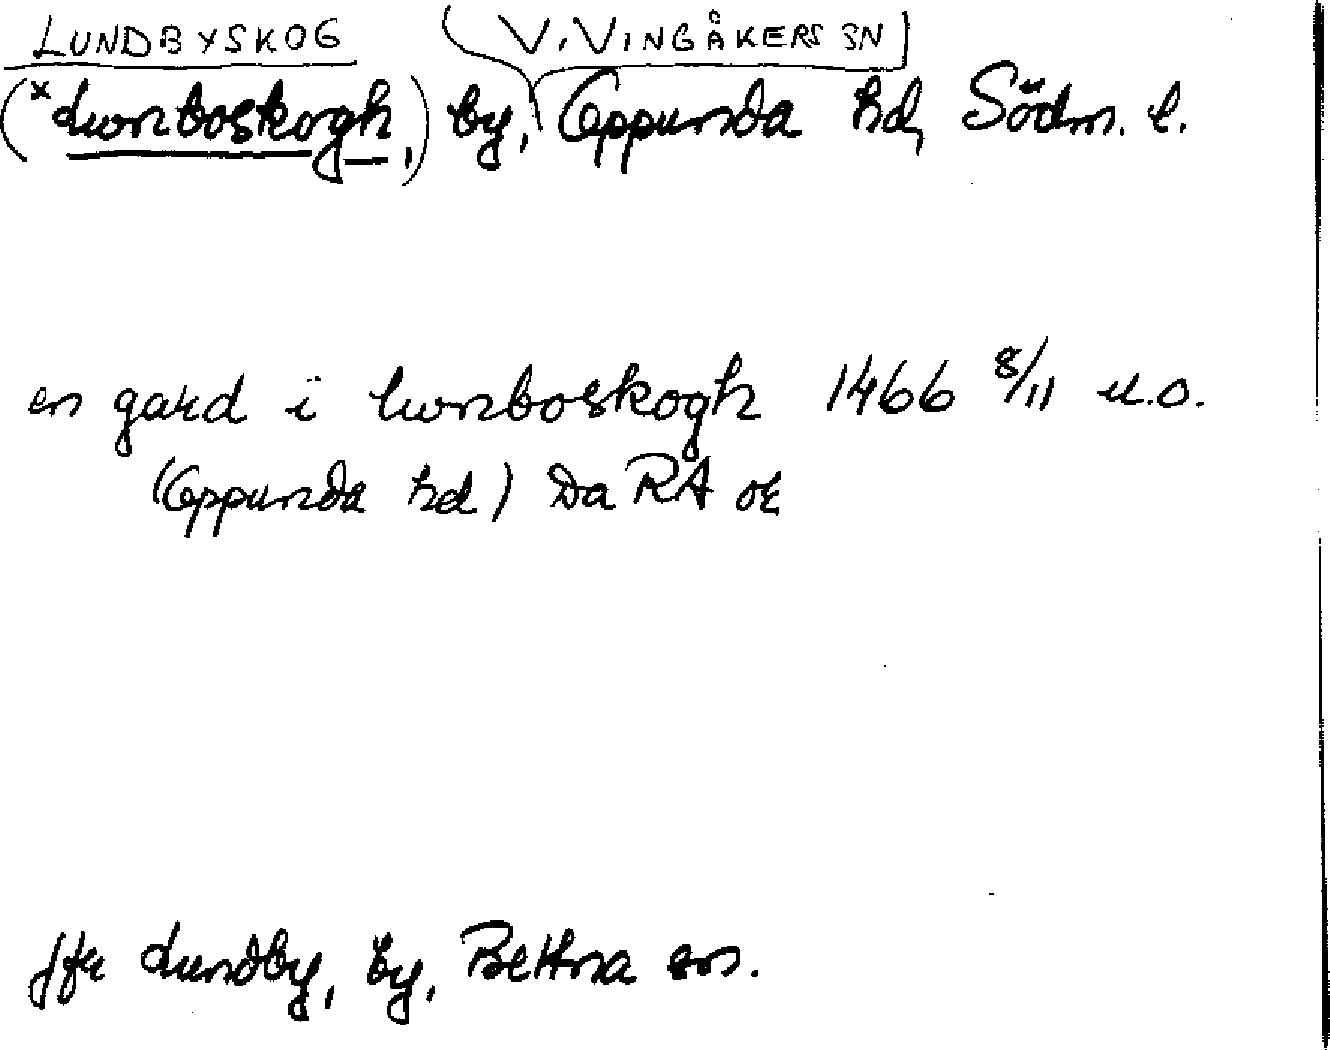 LUNDBYSKOG V. VINGÅKERS SN
(*Lwnboskogh,) by, Oppunda hd, Södm. l.
en gard i lwnboskogh 1466 8/11 u.o.
(Oppunda hd) Da RA or
Jfr Lundby, by, Bettna sn.